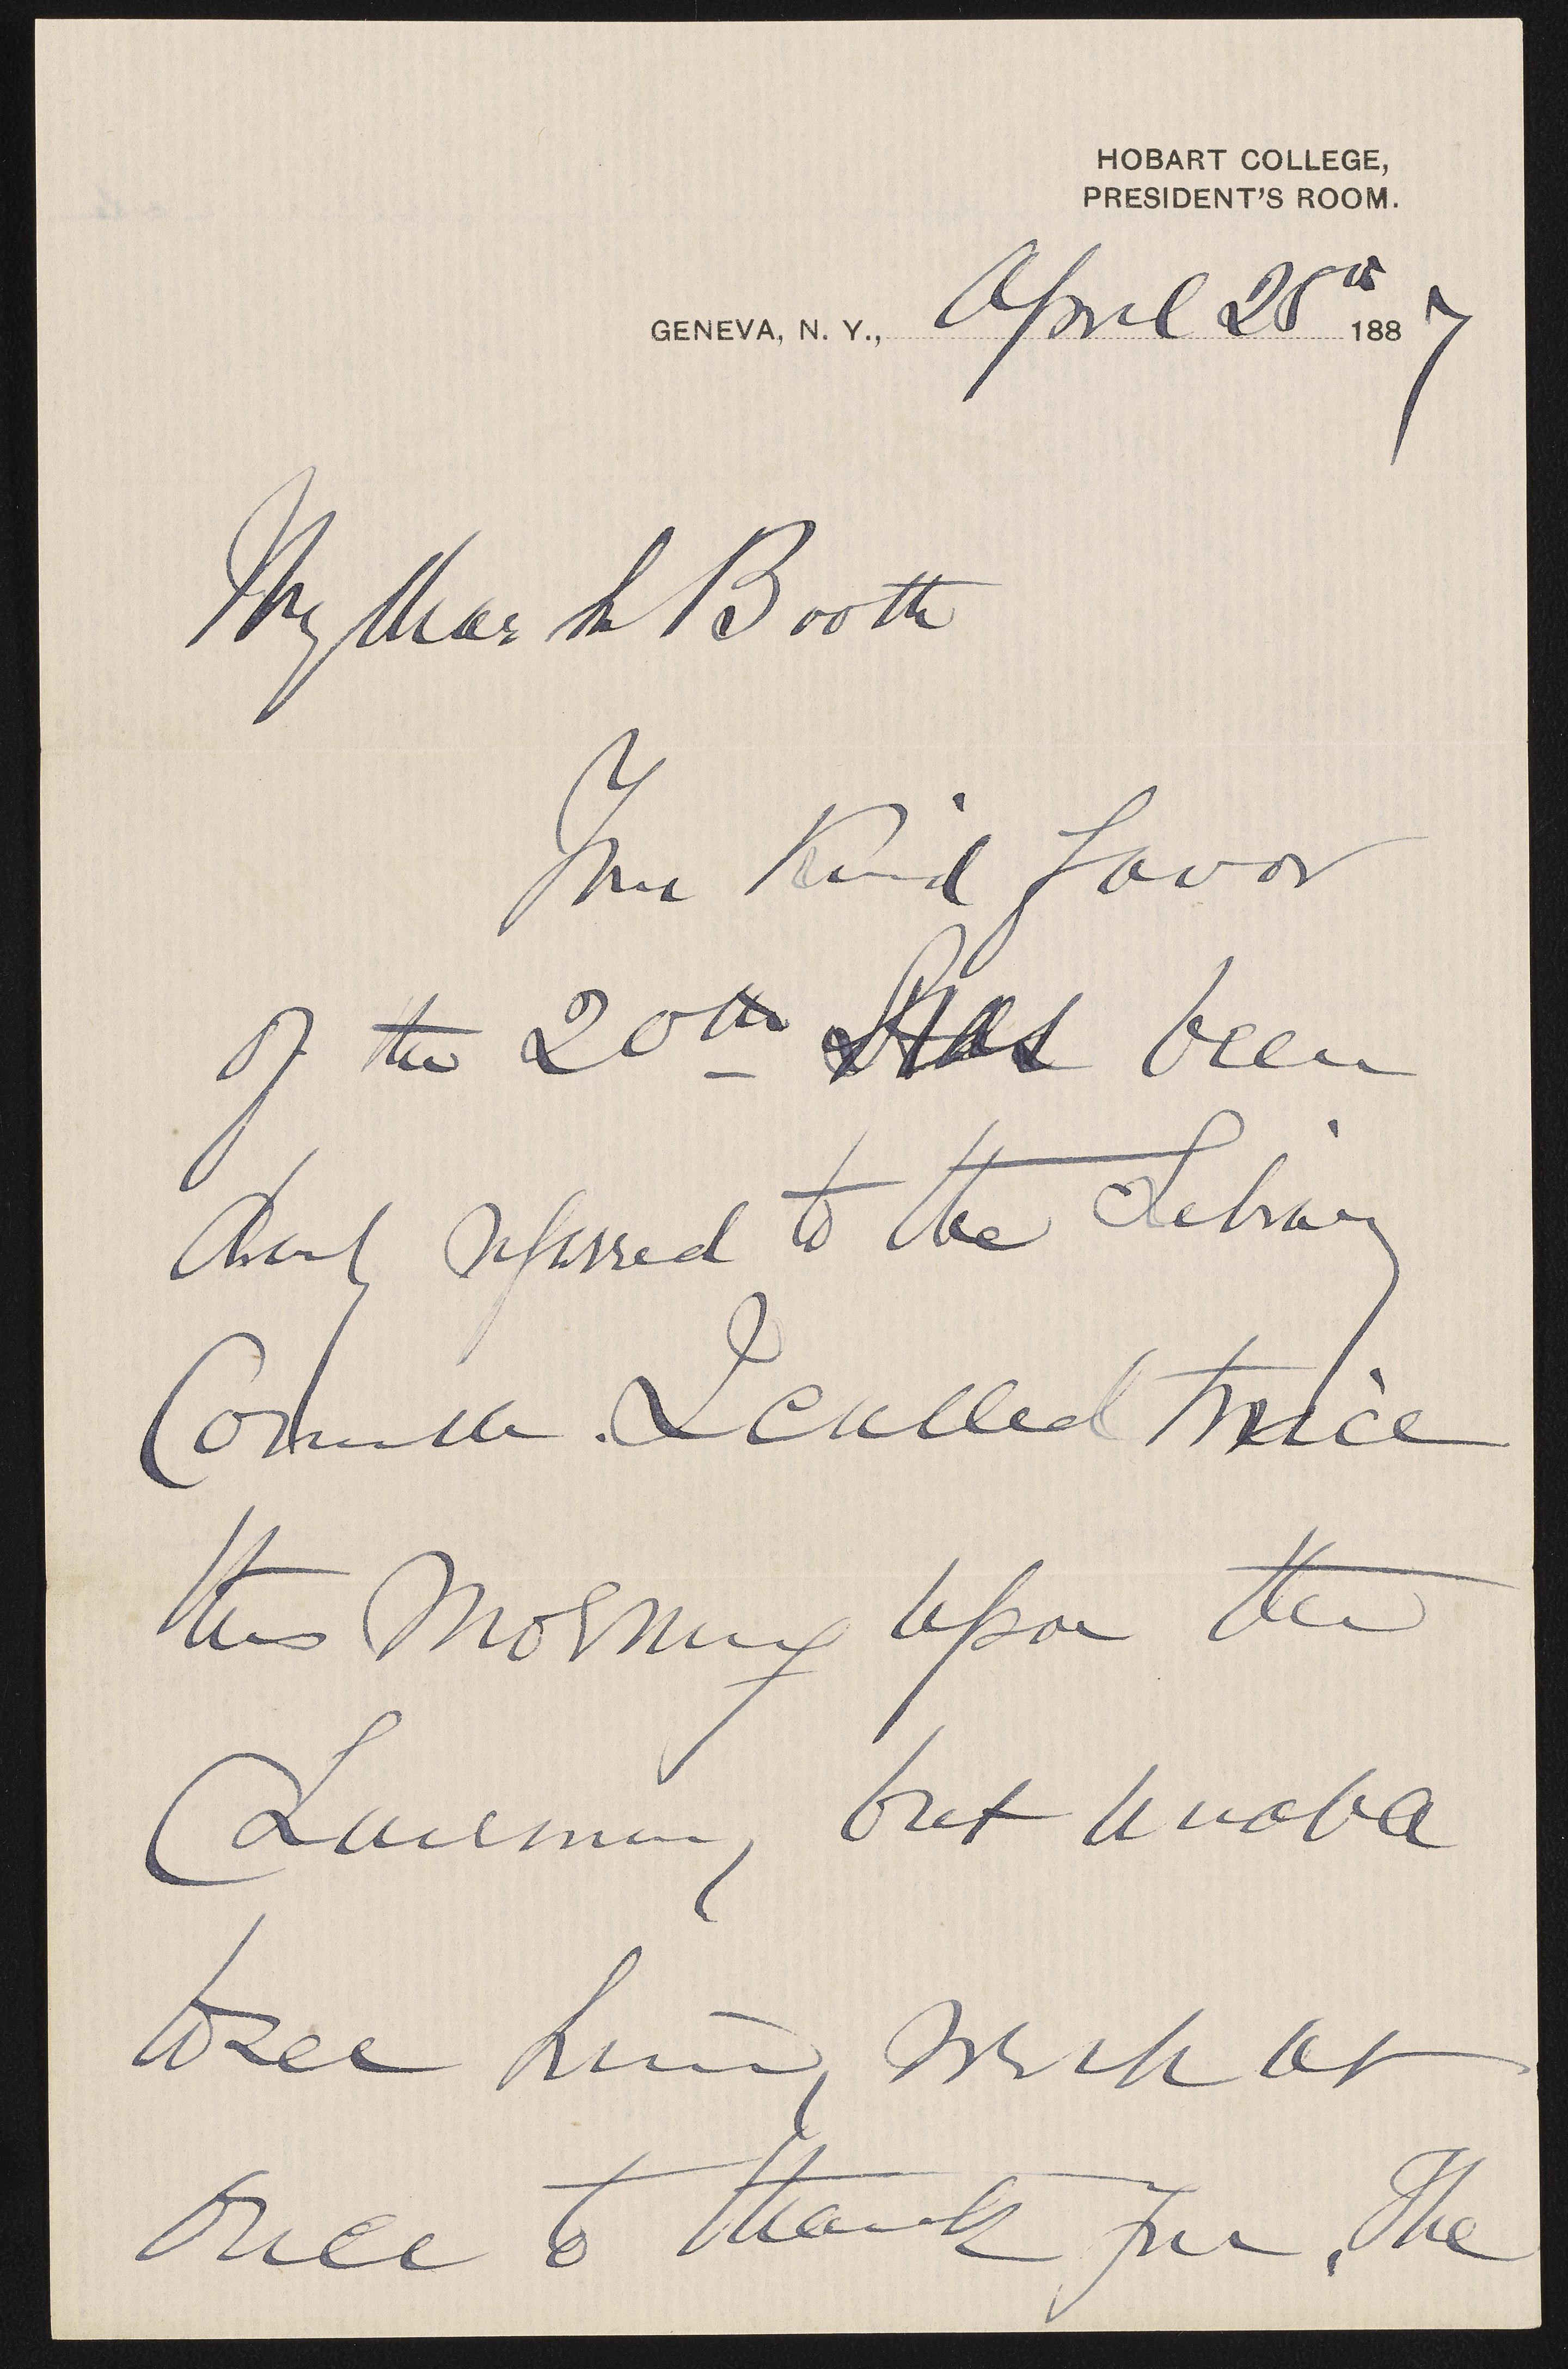 HOBART COLLEGE,
PRESIDENT'S ROOM.
GENEVA, N. Y., April 28th 1887
My dear Mr Booth
Your kind favor
of the 20th has been
duly referred to the Library
Comittee. I called twice
this morning upon the
Chairman, but unable
to see him, wish at
once to thank you. The